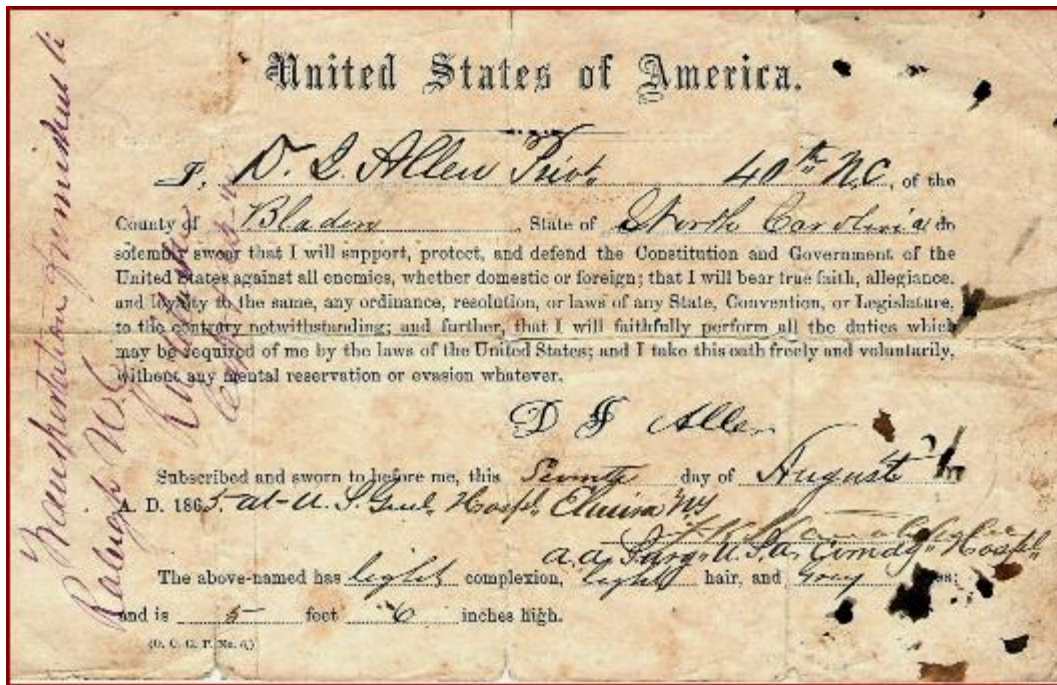 United States of America.
I, D. S. Allen Privt. 40th N.C., of the
County of Bladen, State of North Carolina do
solemnly swear that I will support, protect, and defend the Constitution and Government of the
United States against all enemies, whether domestic or foreign; that I will bear true faith, allegiance,
and loyalty to the same, any ordinance, resolution, or laws of any State, Convention, or Legislature,
to the contrary notwithstanding; and further, that I will faithfully perform all the duties which
may be required of me by the laws of the United States; and I take this oath freely and voluntarily,
without any mental reservation or evasion whatever.
Allen
Subscribed and sworn to before me, this day of August
A. D. 1865, at U. S. Genl. Hospl. Elmira NY
a. a. Surg. U.S.A. Comdg. Hospl.
The above-named has light complexion, light hair, and Grey eyes;
and is 5 feet 6 inches high.
Transportation furnished to
Raleigh N.C.